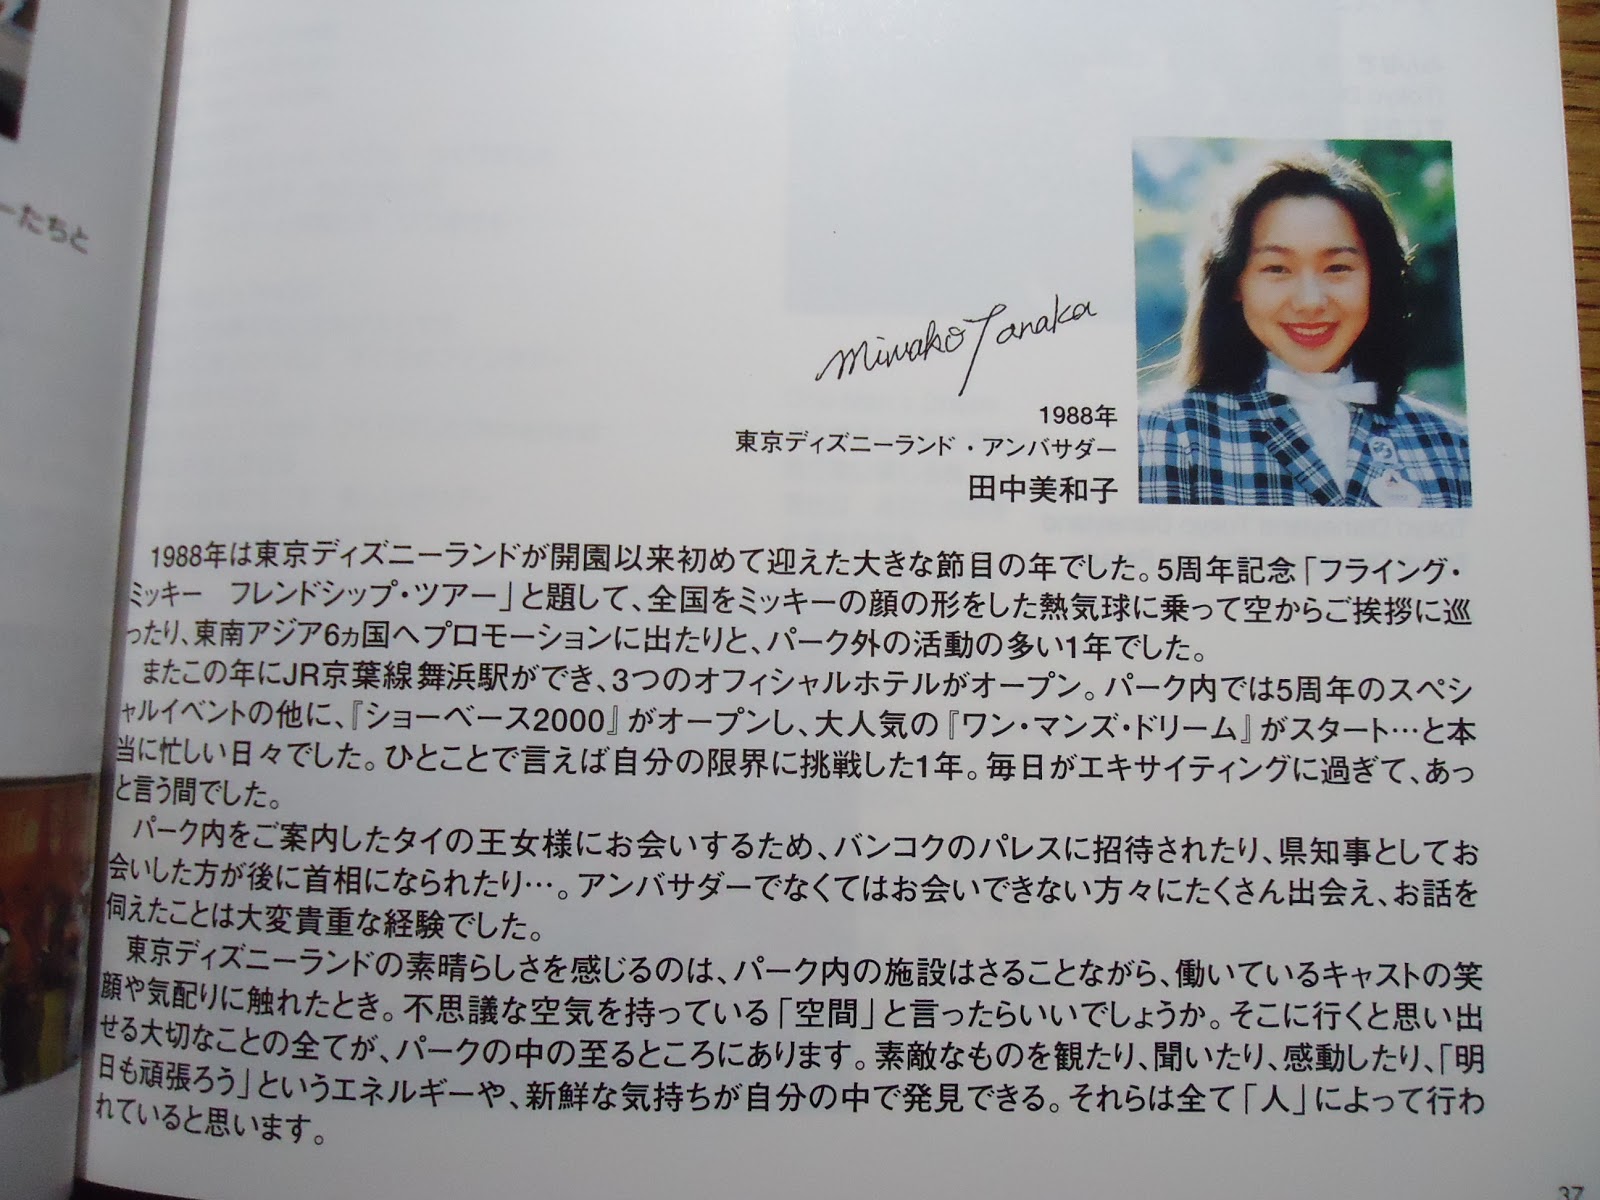 ーたちと
Miwako Tanaka
1988年
東京ディズニーランド・アンバサダー
田中美和子
1988年は東京ディズニーランドが開園以来初めて迎えた大きな節目の年でした。5周年記念「フライング・
ミッキー　フレンドシップ・ツアー」と題して、全国をミッキーの顔の形をした熱気球に乗って空からご挨拶に巡
ったり、東南アジア6ヵ国へプロモーションに出たりと、パーク外の活動の多い1年でした。
またこの年にJR京葉線舞浜駅ができ、3つのオフィシャルホテルがオープン。パーク内では5周年のスペシ
ャルイベントの他に、『ショーベース2000』がオープンし、大人気の『ワン・マンズ・ドリーム』がスタート…と本
当に忙しい日々でした。ひとことで言えば自分の限界に挑戦した1年。毎日がエキサイティングに過ぎて、あっ
と言う間でした。
パーク内をご案内したタイの王女様にお会いするため、バンコクのパレスに招待されたり、県知事としてお
会いした方が後に首相になられたり…。アンバサダーでなくてはお会いできない方々にたくさん出会え、お話を
伺えたことは大変貴重な経験でした。
東京ディズニーランドの素晴らしさを感じるのは、パーク内の施設はさることながら、働いているキャストの笑
顔や気配りに触れたとき。不思議な空気を持っている「空間」と言ったらいいでしょうか。そこに行くと思い出
せる大切なことの全てが、パークの中の至るところにあります。素敵なものを観たり、聞いたり、感動したり、「明
日も頑張ろう」というエネルギーや、新鮮な気持ちが自分の中で発見できる。それらは全て「人」によって行わ
れていると思います。
37